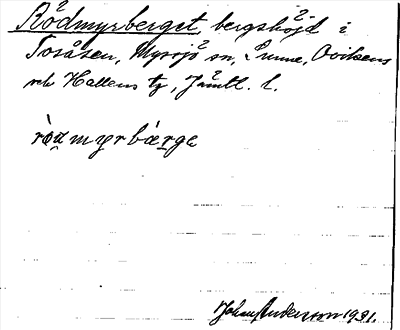 Rödmyrberget, bergshöjd i
Tosåsen, Myssjö sn, Sunne, Ovikens
och Hallens tg, Jämtl. l.
Johan Andersson 1931.